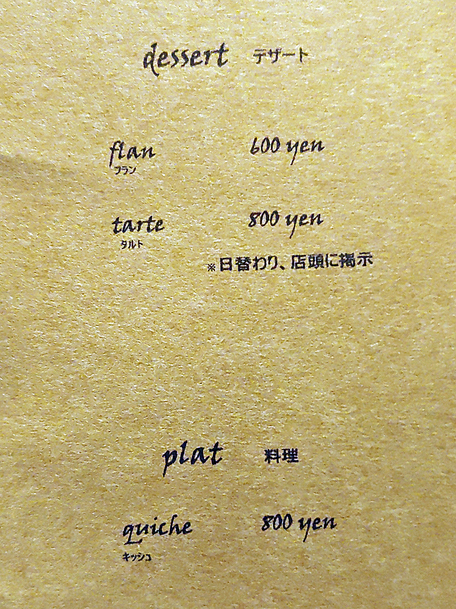 dessert デザート
flan 600 yen
フラン
tarte 800 yen
タルト
※日替わり、店頭に掲示
plat 料理
quiche 800 yen
キッシュ